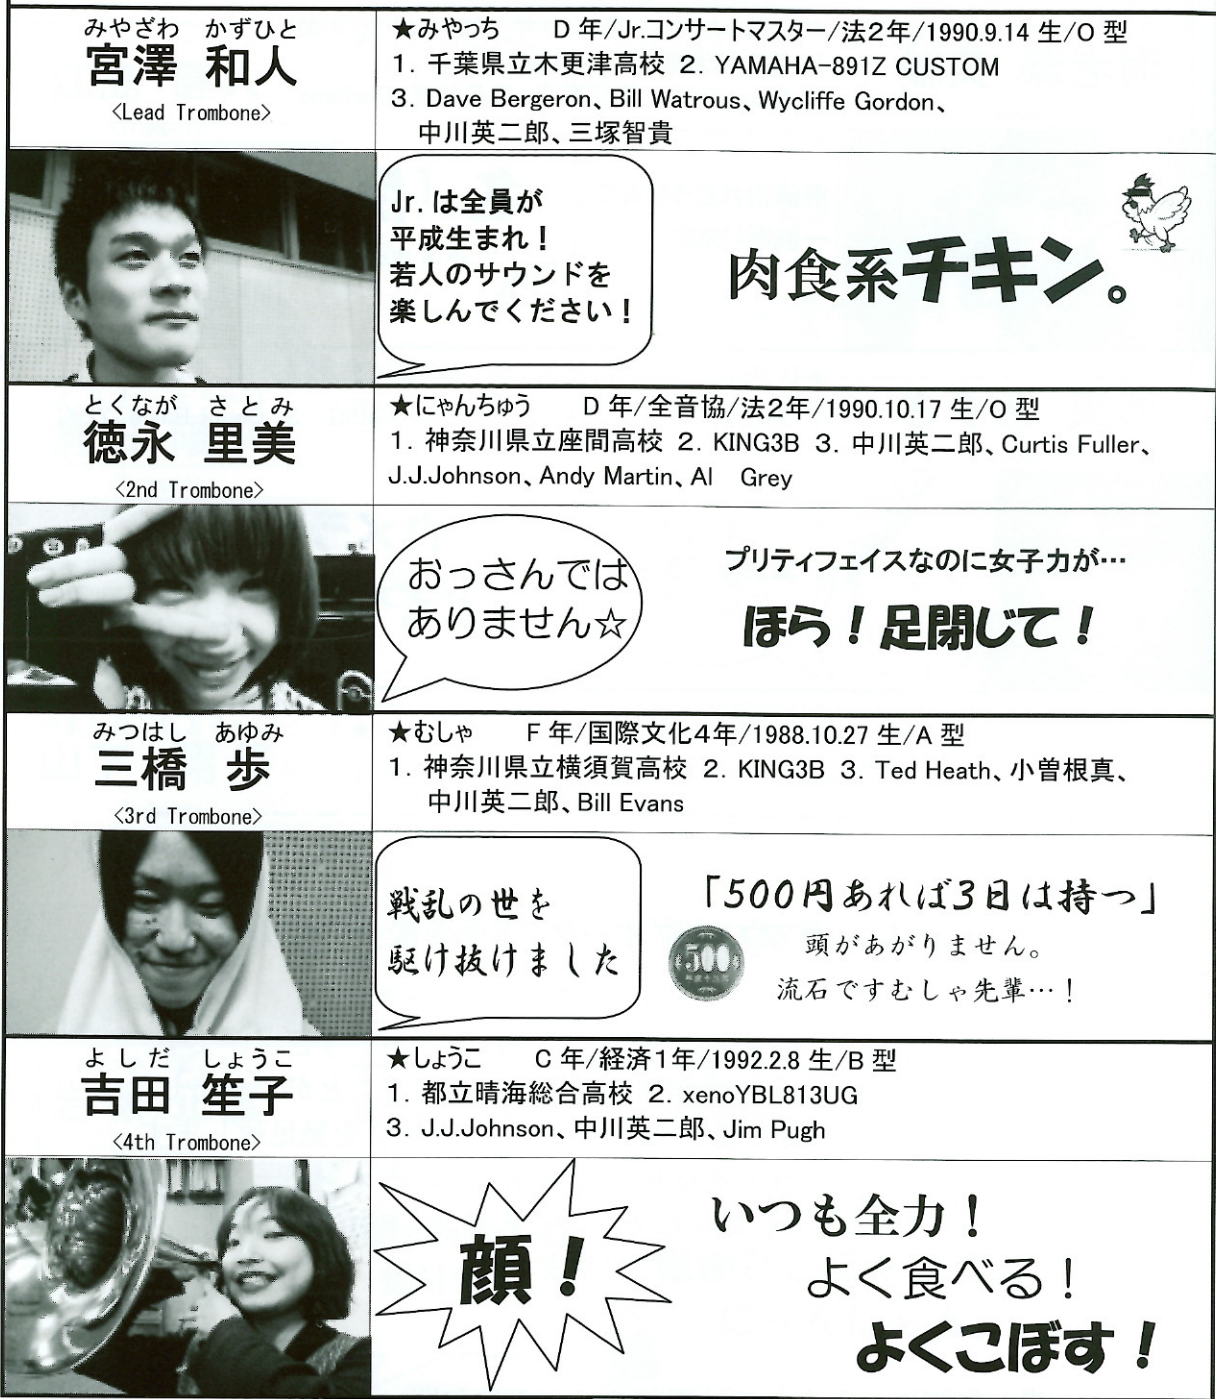 みやざわ　かずひと
宮澤　和人
<Lead Trombone>
★みやっち　D 年/Jr.コンサートマスター/法2年/1990.9.14 生/O 型
1. 千葉県立木更津高校 2. YAMAHA-891Z CUSTOM
3. Dave Bergeron、Bill Watrous、Wycliffe Gordon、
中川英二郎、三塚智貴
Jr.は全員が
平成生まれ！
若人のサウンドを
楽しんでください！
肉食系チキン。
とくなが　さとみ
徳永　里美
<2nd Trombone>
★にゃんちゅう　D 年/全音協/法2年/1990.10.17 生/O 型
1. 神奈川県立座間高校 2. KING3B 3. 中川英二郎、Curtis Fuller、
J.J.Johnson、Andy Martin、Al　Grey
おっさんでは
ありません☆
プリティフェイスなのに女子力が…
ほら！足閉じて！
みつはし　あゆみ
三橋　歩
<3rd Trombone>
★むしゃ　F 年/国際文化4年/1988.10.27 生/A 型
1. 神奈川県立横須賀高校 2. KING3B 3. Ted Heath、小曽根真、
中川英二郎、Bill Evans
戦乱の世を
駆け抜けました
「500円あれば3日は持つ」
500
頭があがりません。
流石ですむしゃ先輩…！
よしだ　しょうこ
吉田　笙子
<4th Trombone>
★しょうこ　C 年/経済1年/1992.2.8 生/B 型
1. 都立晴海総合高校 2. xenoYBL813UG
3. J.J.Johnson、中川英二郎、Jim Pugh
顔！
いつも全力！
よく食べる！
よくこぼす！